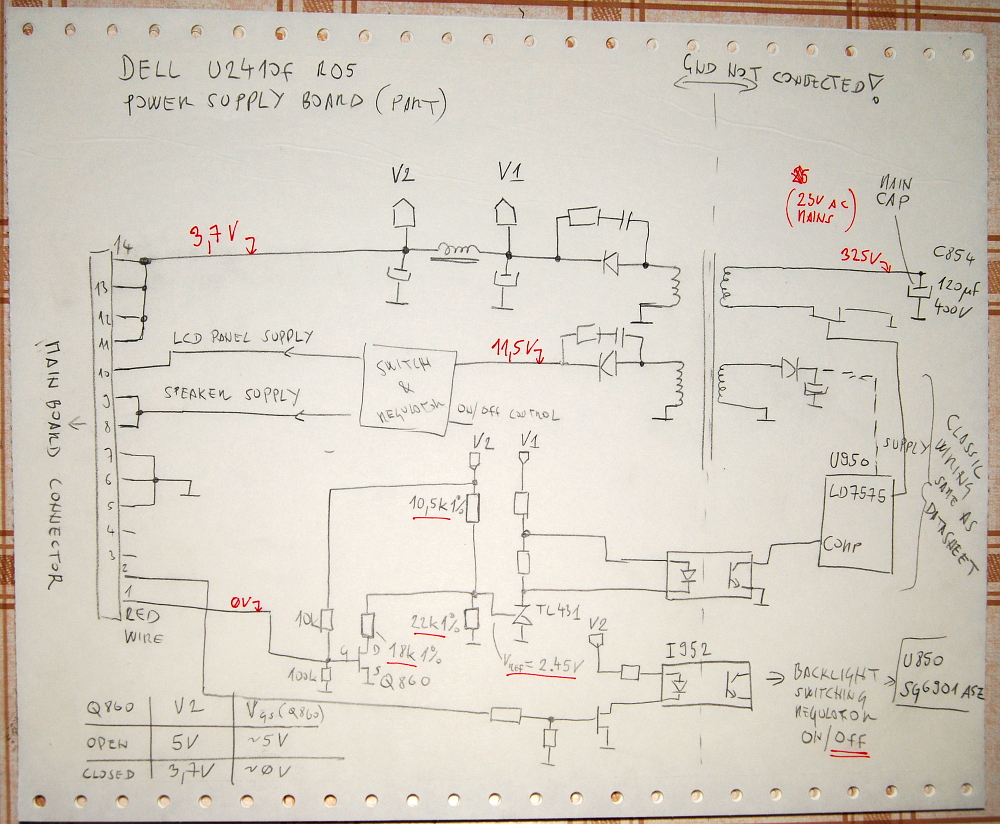 DELL U2410f R05
POWER SUPPLY BOARD (PART)
GND NOT CONNECTED!
V2
V1
(23V AC
MAINS)
MAIN
CAP
14
3,7V
325V
C854
120µf
400V
13
12
11
LCD PANEL SUPPLY
11,5V
10
SWITCH
&
REGULATOR
SPEAKER SUPPLY
9
8
ON/Off CONTROL
MAIN BOARD CONNECTOR
V2
V1
7
6
5
4
3
2
1
10,5k 1%
SUPPLY
U950
LD7575
COMP
CLASSIC
WIRING
SAME AS
DATASHEET
0V
RED
WIRE
10k
22k 1%
TL431
G
D
S
18k 1%
100k
Q860
VREF = 2.45V
V2
I952
BACKLIGHT
SWITCHING
REGULATOR
ON/Off
U850
SG6901ASZ
Q860
V2
VGS(Q860)
OPEN
5V
~5V
CLOSED
3,7V
~0V